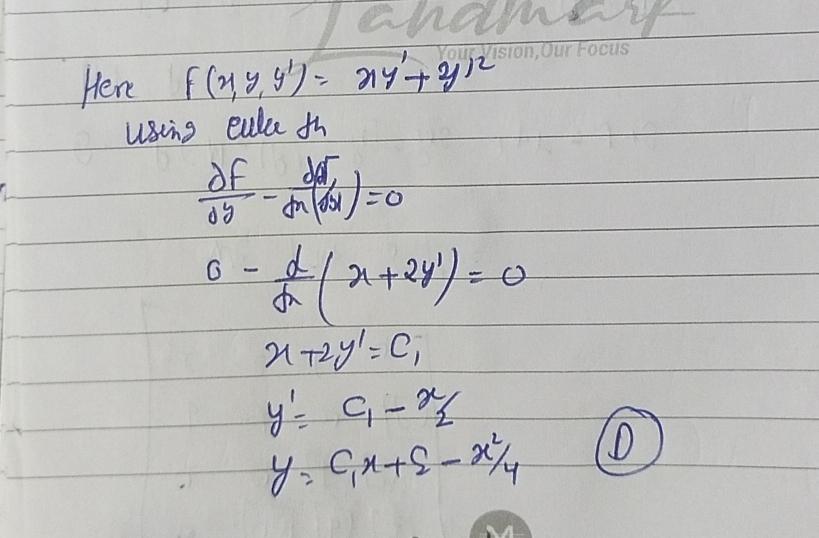 Landmark
Your Vision, Our Focus
Here F(x, y, y') = xy' + y'²
Using euler th
∂F/∂y - d/dx(∂F/∂y') = 0
0 - d/dx (x + 2y') = 0
x + 2y' = C₁
y' = C₁ - x/2
y = C₁x + C₂ - x²/4
D